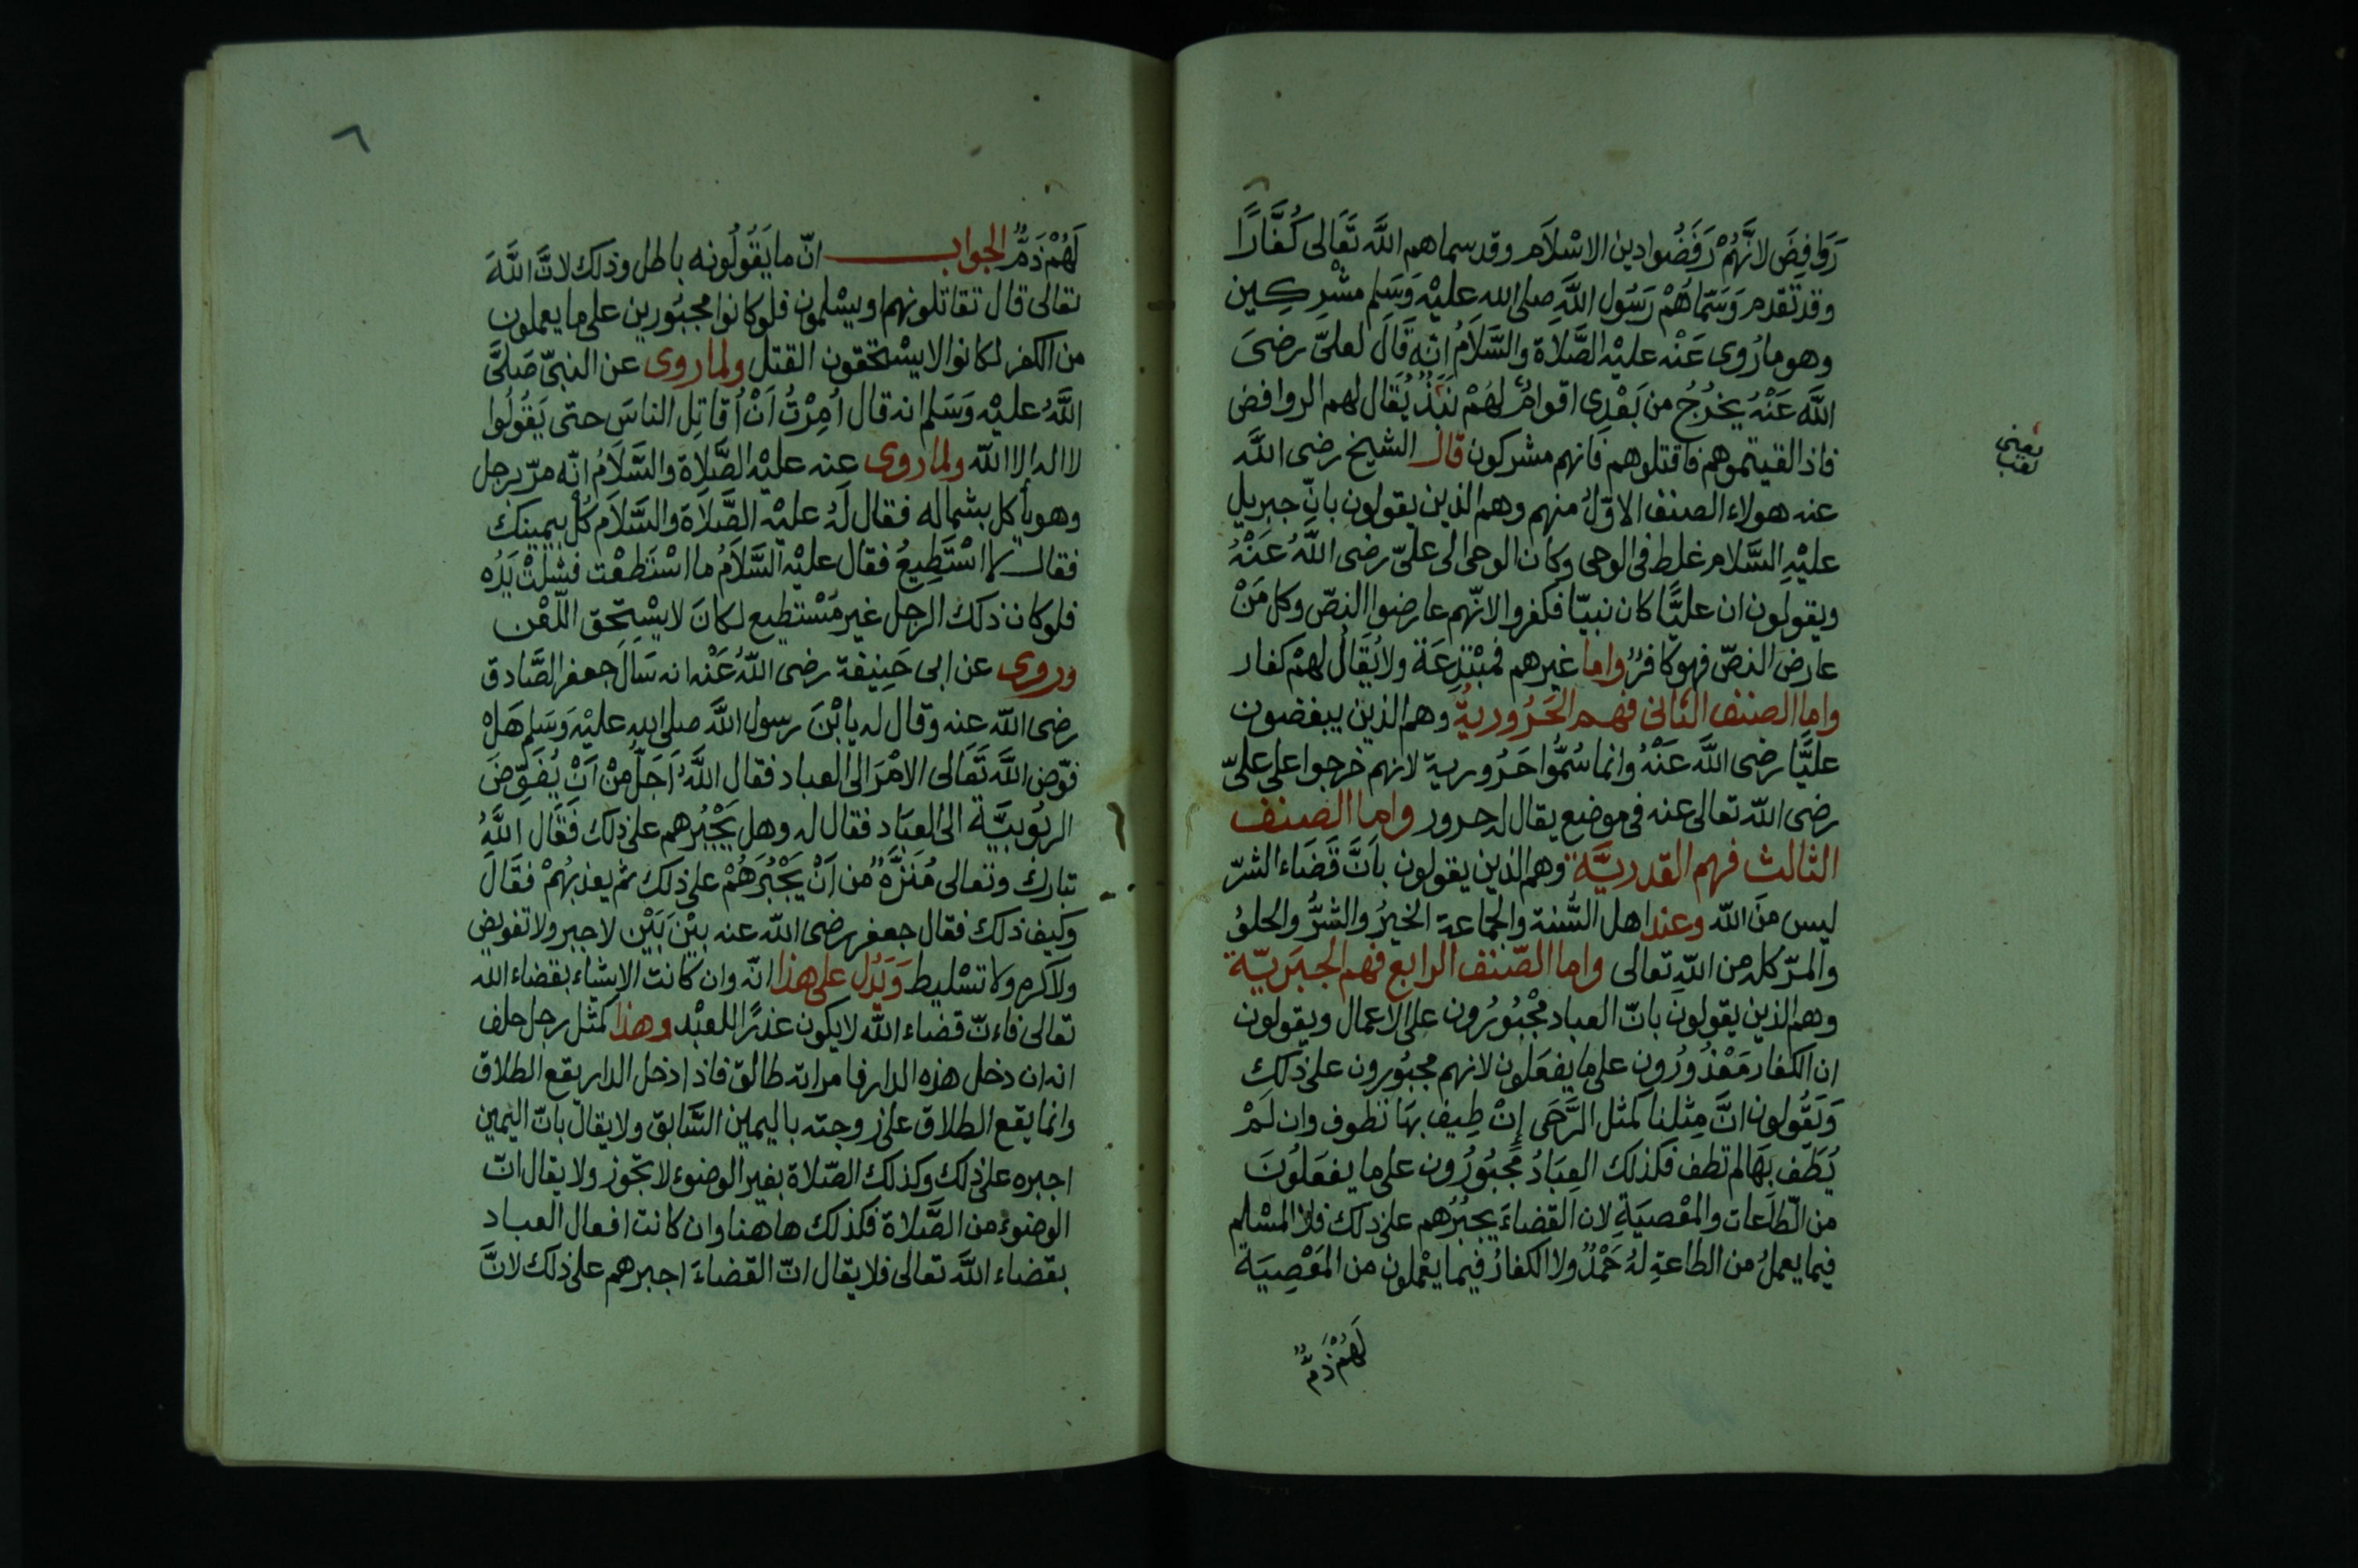 رَوَافِضَ لانَّهُمْ رَفَضُوا دين الاسْلاَم وقد سماهم اللَّه تَعَالى كُفَّارًا
وقد تقدم وَسَمَّاهُمْ رَسُول اللَّهِ صلى الله عليْهِ وَسَلم مشْرِكِين
وهو ما رُوى عَنْه عليْه الصَّلاَة والسَّلاَمُ انّه قَالَ لعلىّ رضىَ
اللَّه عَنْهُ يخرُجُ من بَعْدِى اقوامٌ لهُمْ نَبَذٌ يُقَال لهم الروافض
فاذا لقيتموهم فاقتلوهم فانهم مشركون قال الشيخ رضى اللَّه
يعنى لقب
عنه هولاء الصنف الاوّلُ منهم وهم الذين يقولون بانّ جبريل
عليْهِ السَّلام غلط فى الوحى وكان الوحى الى علىّ رضى اللَّهُ عَنْهُ
ويقولون ان عليًّا كان نبيّا فكفروا لانّهم عارضوا النصّ وكل مَنْ
عارض النصّ فهو كافرٌ واما غيرهم فمبْتدِعَة ولا يُقَالُ لهمْ كفار
واما الصنف الثانى فهم الحَرُوريةُ وهم الذين يبغضون
عليَّا رضى اللَّه عَنْهُ وانما سُمُّوا حَرُورية لانهم خرجوا على علىّ
رضى اللّه تعالى عنه فى موضع يقال له حرور واما الصنف
الثالث فهم القدريَّة وهم الذين يقولون باَنَّ قَضَاء الشرّ
ليس منَ اللّه وعند اهل السُّنة والجماعة الخيرُ والشرُّ والحلوُ
والمرّ كله من اللّه تعالى واما الصّنف الرابع فهم الجبَريّة
وهم الذين يقولونَ بانّ العباد مجْبُورُون على الاعمال ويقولون
ان الكفار مَعْذُورُون على ما يفعَلون لانهم مجبُورون على ذَلكِ
وَيَقُولون انَّ مِثلنا كمثل الرَّحَى اِنْ طِيف بهَا تطوف وان لَمْ
يُطَف بهَا لم تطف فكذلك العِبَادُ مَجبُورُون على ما يفعَلُونَ
من الطّاعات والمعْصيَةِ لان القضاءَ يجبُرُهم على ذلك فلا المسْلم
فيما يعملُ من الطاعةِ لهُ حَمْدٌ ولا الكفارُ فيما يعْملون من المَعْصِيَة
لَهُمْ ذَمٌّ
٦
لَهُمْ ذَمٌّ الجواب انّ ما يَقُولُونه باطل وذلك لانَّ اللَّهَ
تعالى قال تقاتلونهم او يسْلمون فلو كانوا مجبُورين على ما يعملون
من الكفر لكانوا لا يسْتحقون القتل ولما روى عن النبىّ صَلىَّ
اللَّهُ عليْه وَسَلم انه قال اُمِرْتُ اَنْ اُقاتِل الناسَ حتى يَقُولُوا
لا اله الا اللّه ولما روى عنه عليْه الصَّلاَة والسَّلاَمُ انّه مرّ برجل
وهو ياكل بشماله فقال لَهُ عليْه الصَّلاَة والسَّلاَم كُلْ بيمينك
فقال لا اسْتَطِيعُ فقال عليْه السَّلاَمُ ما اسْتَطعْت فشلتْ يَدُه
فلو كان ذلك الرجل غير مُسْتطِيع لكانَ لا يسْتحِق اللّعْن
وروى عن ابى حَنِيفة رضى اللّهُ عَنْه انه سَاَلَ جعفر الصَّادق
رضى اللّه عنه وقال له يا ابْنَ رسول اللَّه صلى الله عليْه وَسَلم هَلْ
فوّض اللَّه تَعَالى الامْرَ الى العباد فقال اللَّهُ اَجَلُّ مِنْ اَنْ يُفَوِّضَ
الربُوبيَّة الى العبَاد فقال له وهل يَجْبُرهم على ذلك فَقَال اللَّهُ
تبارك وتعالى مُنَزَّهٌ من اَنْ يَجْبُرَهُمْ على ذلك ثم يعذبهُمْ فقَالَ
وكيف ذلك فقال جعفر رضى اللّه عنه بيْن بَيْن لا جبر ولا تفويض
ولا كره ولا تسْليط وَيَدُل على هذا انّه وان كانت الاشياء بقضاء اللّه
تعالى فاءنّ قضاء اللّه لا يكون عذرًا للعبْد وهذا كمثل رجل حلف
انه ان دخل هذه الدار فامراته طالق فاذا دخل الدار يقع الطلاق
وانما يقع الطلاق على زوجته باليمين السَّابق ولا يقال بانّ اليمين
اجبره على ذلك وكذلك الصّلاة بغير الوضوء لا تجوز ولا يقال انّ
الوضوء من الصَّلاة فكذلك هاهنا وان كانت افعال العباد
بقضاء اللَّه تعالى فلا يقال انّ القضاءَ اجبرهم على ذلك لانَّ